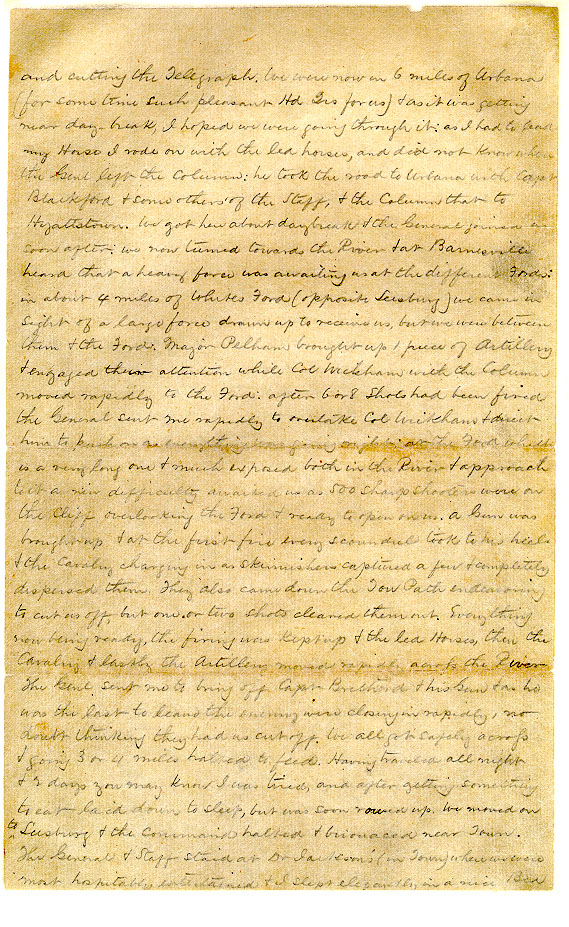 and cutting the Telegraph. We were now in 6 miles of Urbana
(for some time such pleasant Hd Qrs for us) & as it was getting
near day-break, I hoped we were going through it: as I had to lead
my Horse I rode on with the led horses, and did not know when
the Genl left the Column: he took the road to Urbana with Capt
Blackford & some others of the Staff, & the Column that to
Hyattstown. We got here about daybreak & the General joined us
soon after: we now turned towards the River & at Barnesville
heard that a heavy force was awaiting us at the different Fords:
in about 4 miles of Whites Ford (opposite Leesburg) we came in
sight of a large force drawn up to receive us, but we were between
them & the Ford. Major Pelham brought up 1 piece of Artillery
& engaged their attention while Col Wickham with the Column
moved rapidly to the Ford: after 6 or 8 Shots had been fired
the General sent me rapidly to overtake Col Wickham & direct
him to push on as everything was going right: at the Ford which
is a very long one & much exposed both in the River & approach
to it a new difficulty awaited us as 500 Sharp shooters were on
the Cliff overlooking the Ford & ready to open on us. A Gun was
brought up & at the first fire every scoundrel took to his heels
& the Cavalry charging in as skirmishers captured a few & completely
dispersed them. They also came down the Tow Path endeavoring
to cut us off, but one or two shots cleared them out. Everything
now being ready, the firing was kept up & the led Horses, then the
Cavalry & lastly the Artillery moved rapidly across the River
The Genl. sent me to bring off Capt Brethard & his Gun & as he
was the last to leave the enemy were closing in rapidly, no
doubt thinking they had us cut off. We all got safely across
& going 3 or 4 miles halted to feed. Having traveled all night
& 2 days you may know I was tired, and after getting something
to eat laid down to sleep, but was soon roused up. We moved on
to Leesburg & the Command halted & bivouaced near Town.
The General & Staff staid at Dr Jacksons (in Town) where we were
most hospitably entertained & I slept elegantly in a nice Bed